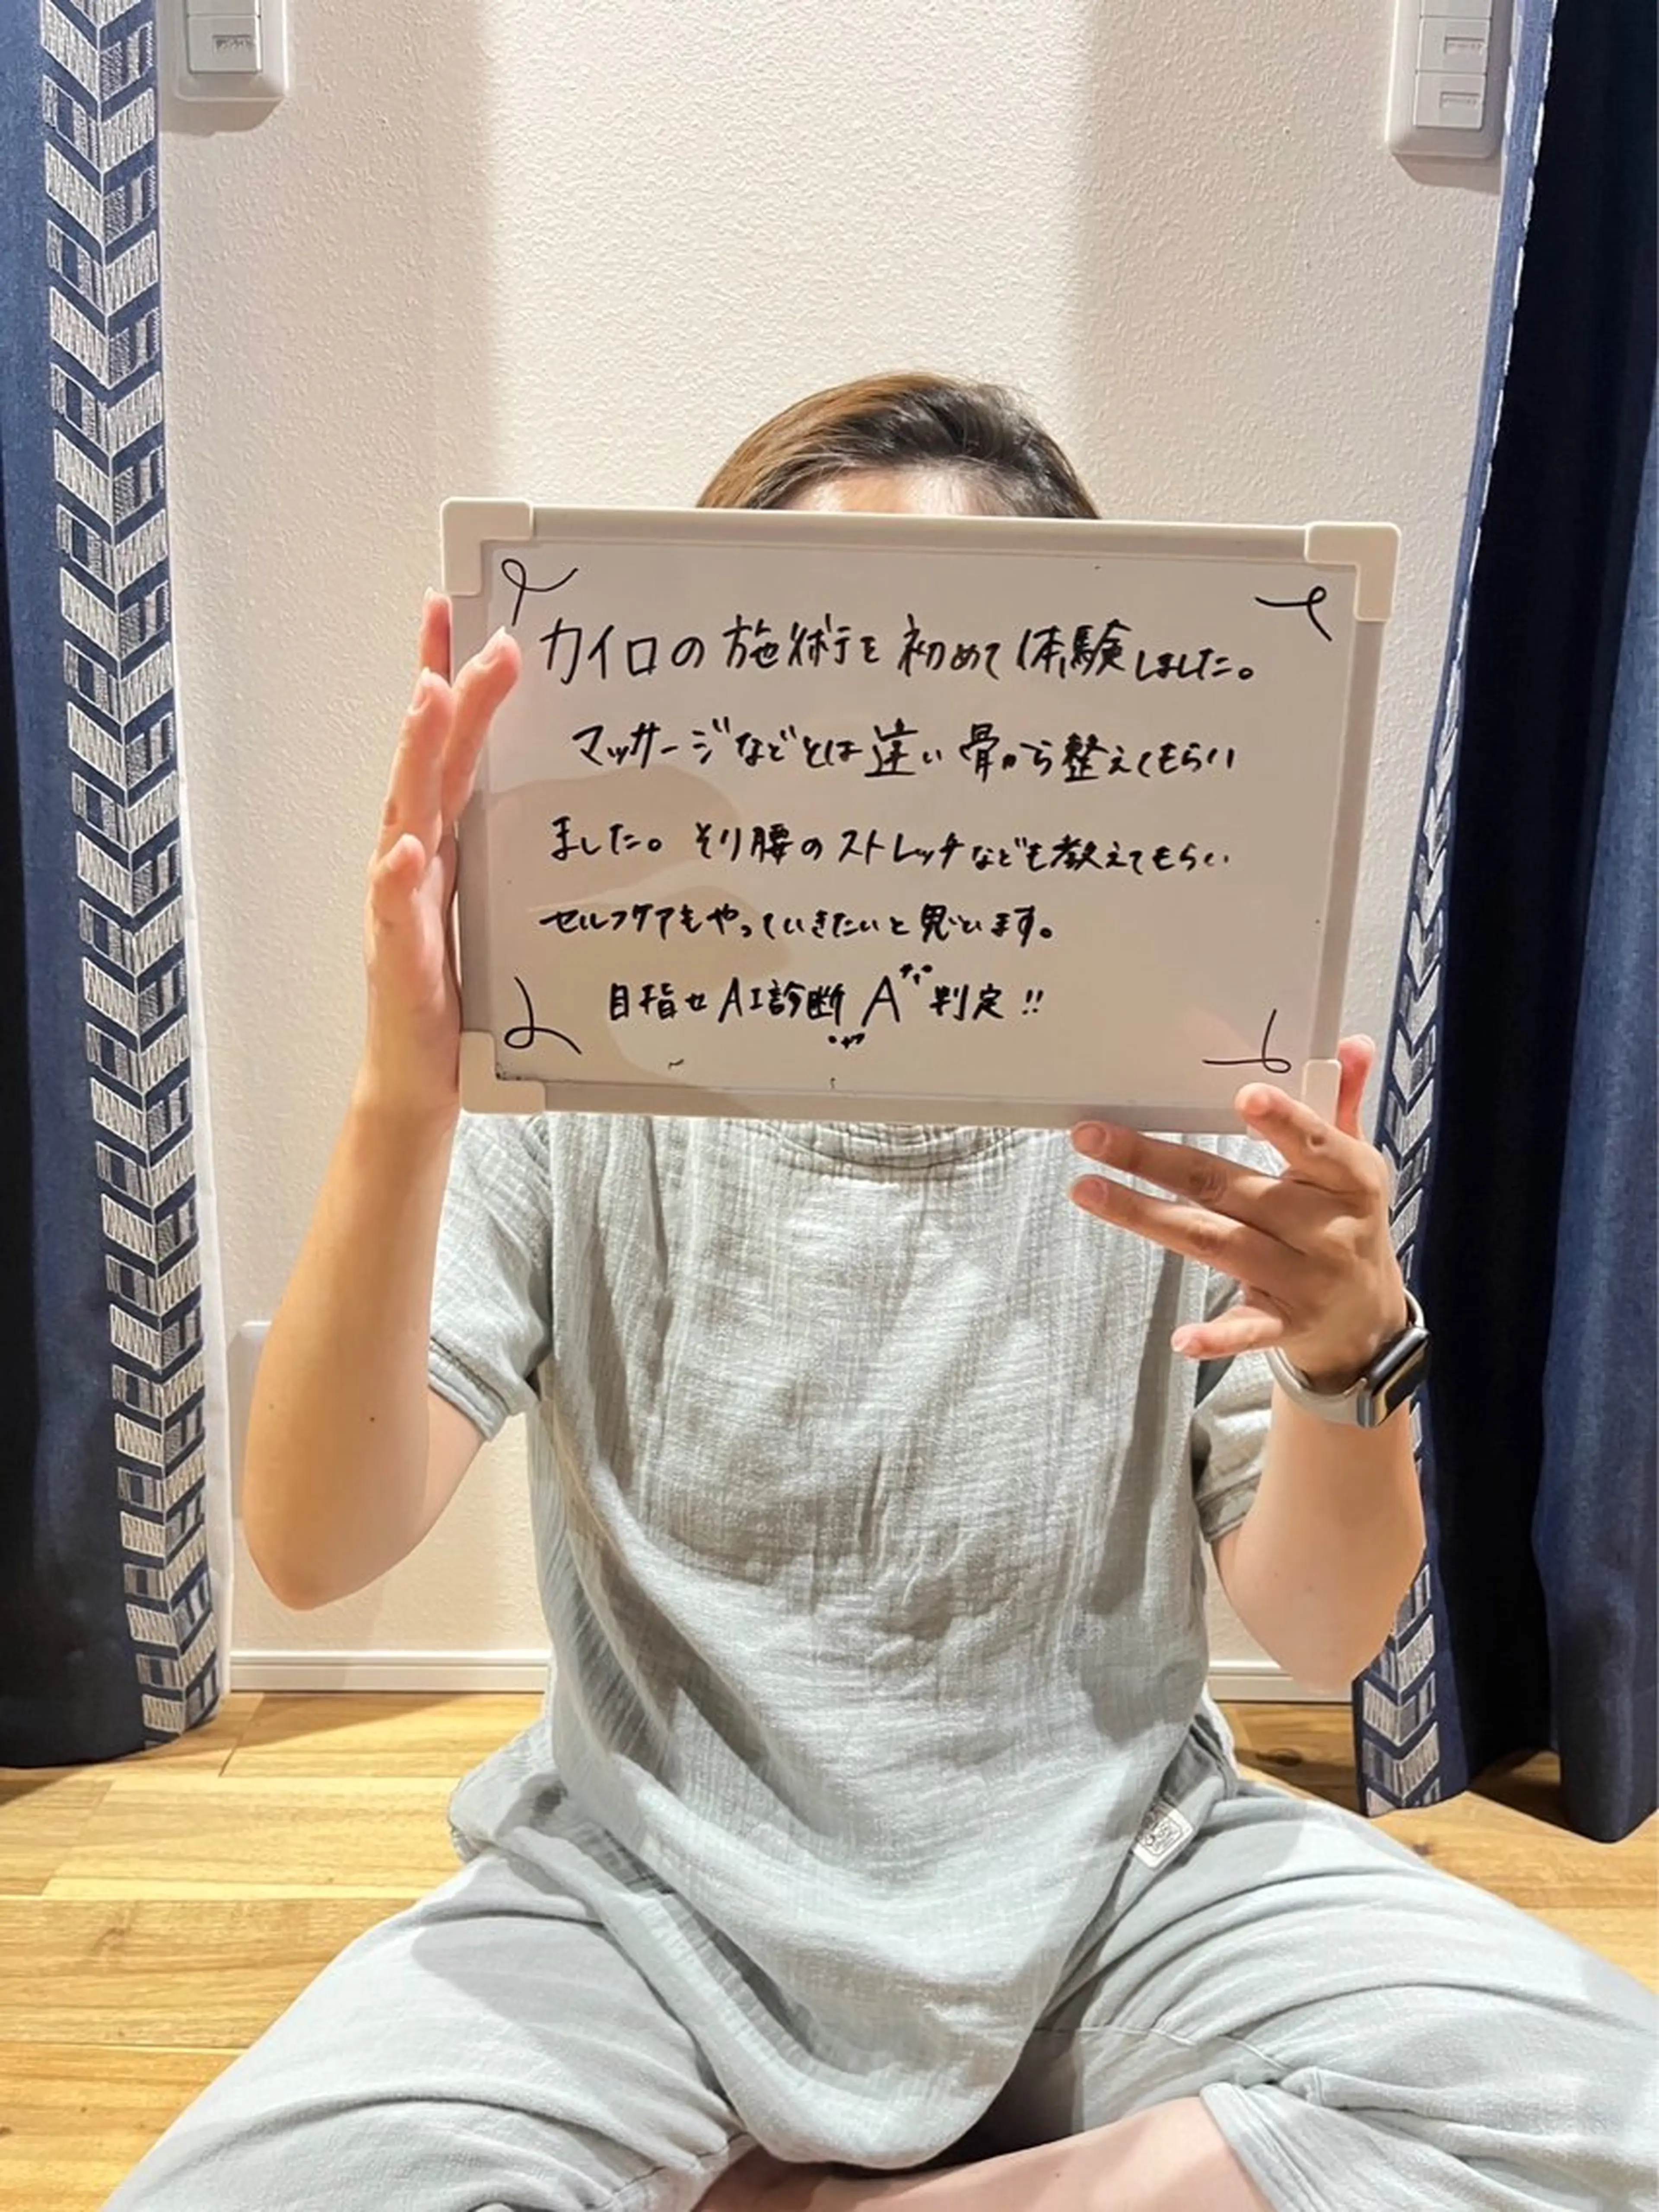 カイロの施術を初めて体験しました。
マッサージなどとは違い骨から整えてもらい
ました。そり腰のストレッチなども教えてもらい
セルフケアもやっていきたいと思います。
目指せAI診断A判定!!